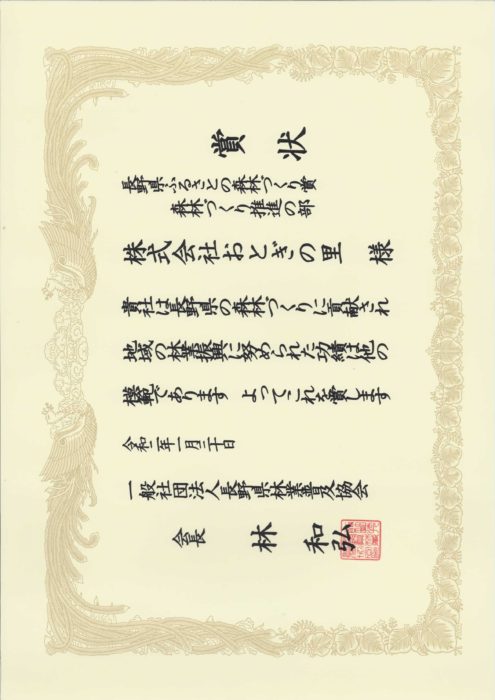 賞状
長野県ふるさとの森林づくり賞
森林づくり推進の部
株式会社おとぎの里 様
貴社は長野県の森林づくりに貢献され
地域の林業振興に努められた功績は他の
模範であります よってこれを賞します
令和二年一月三十日
一般社団法人長野県林業普及協会
会長 林 和弘